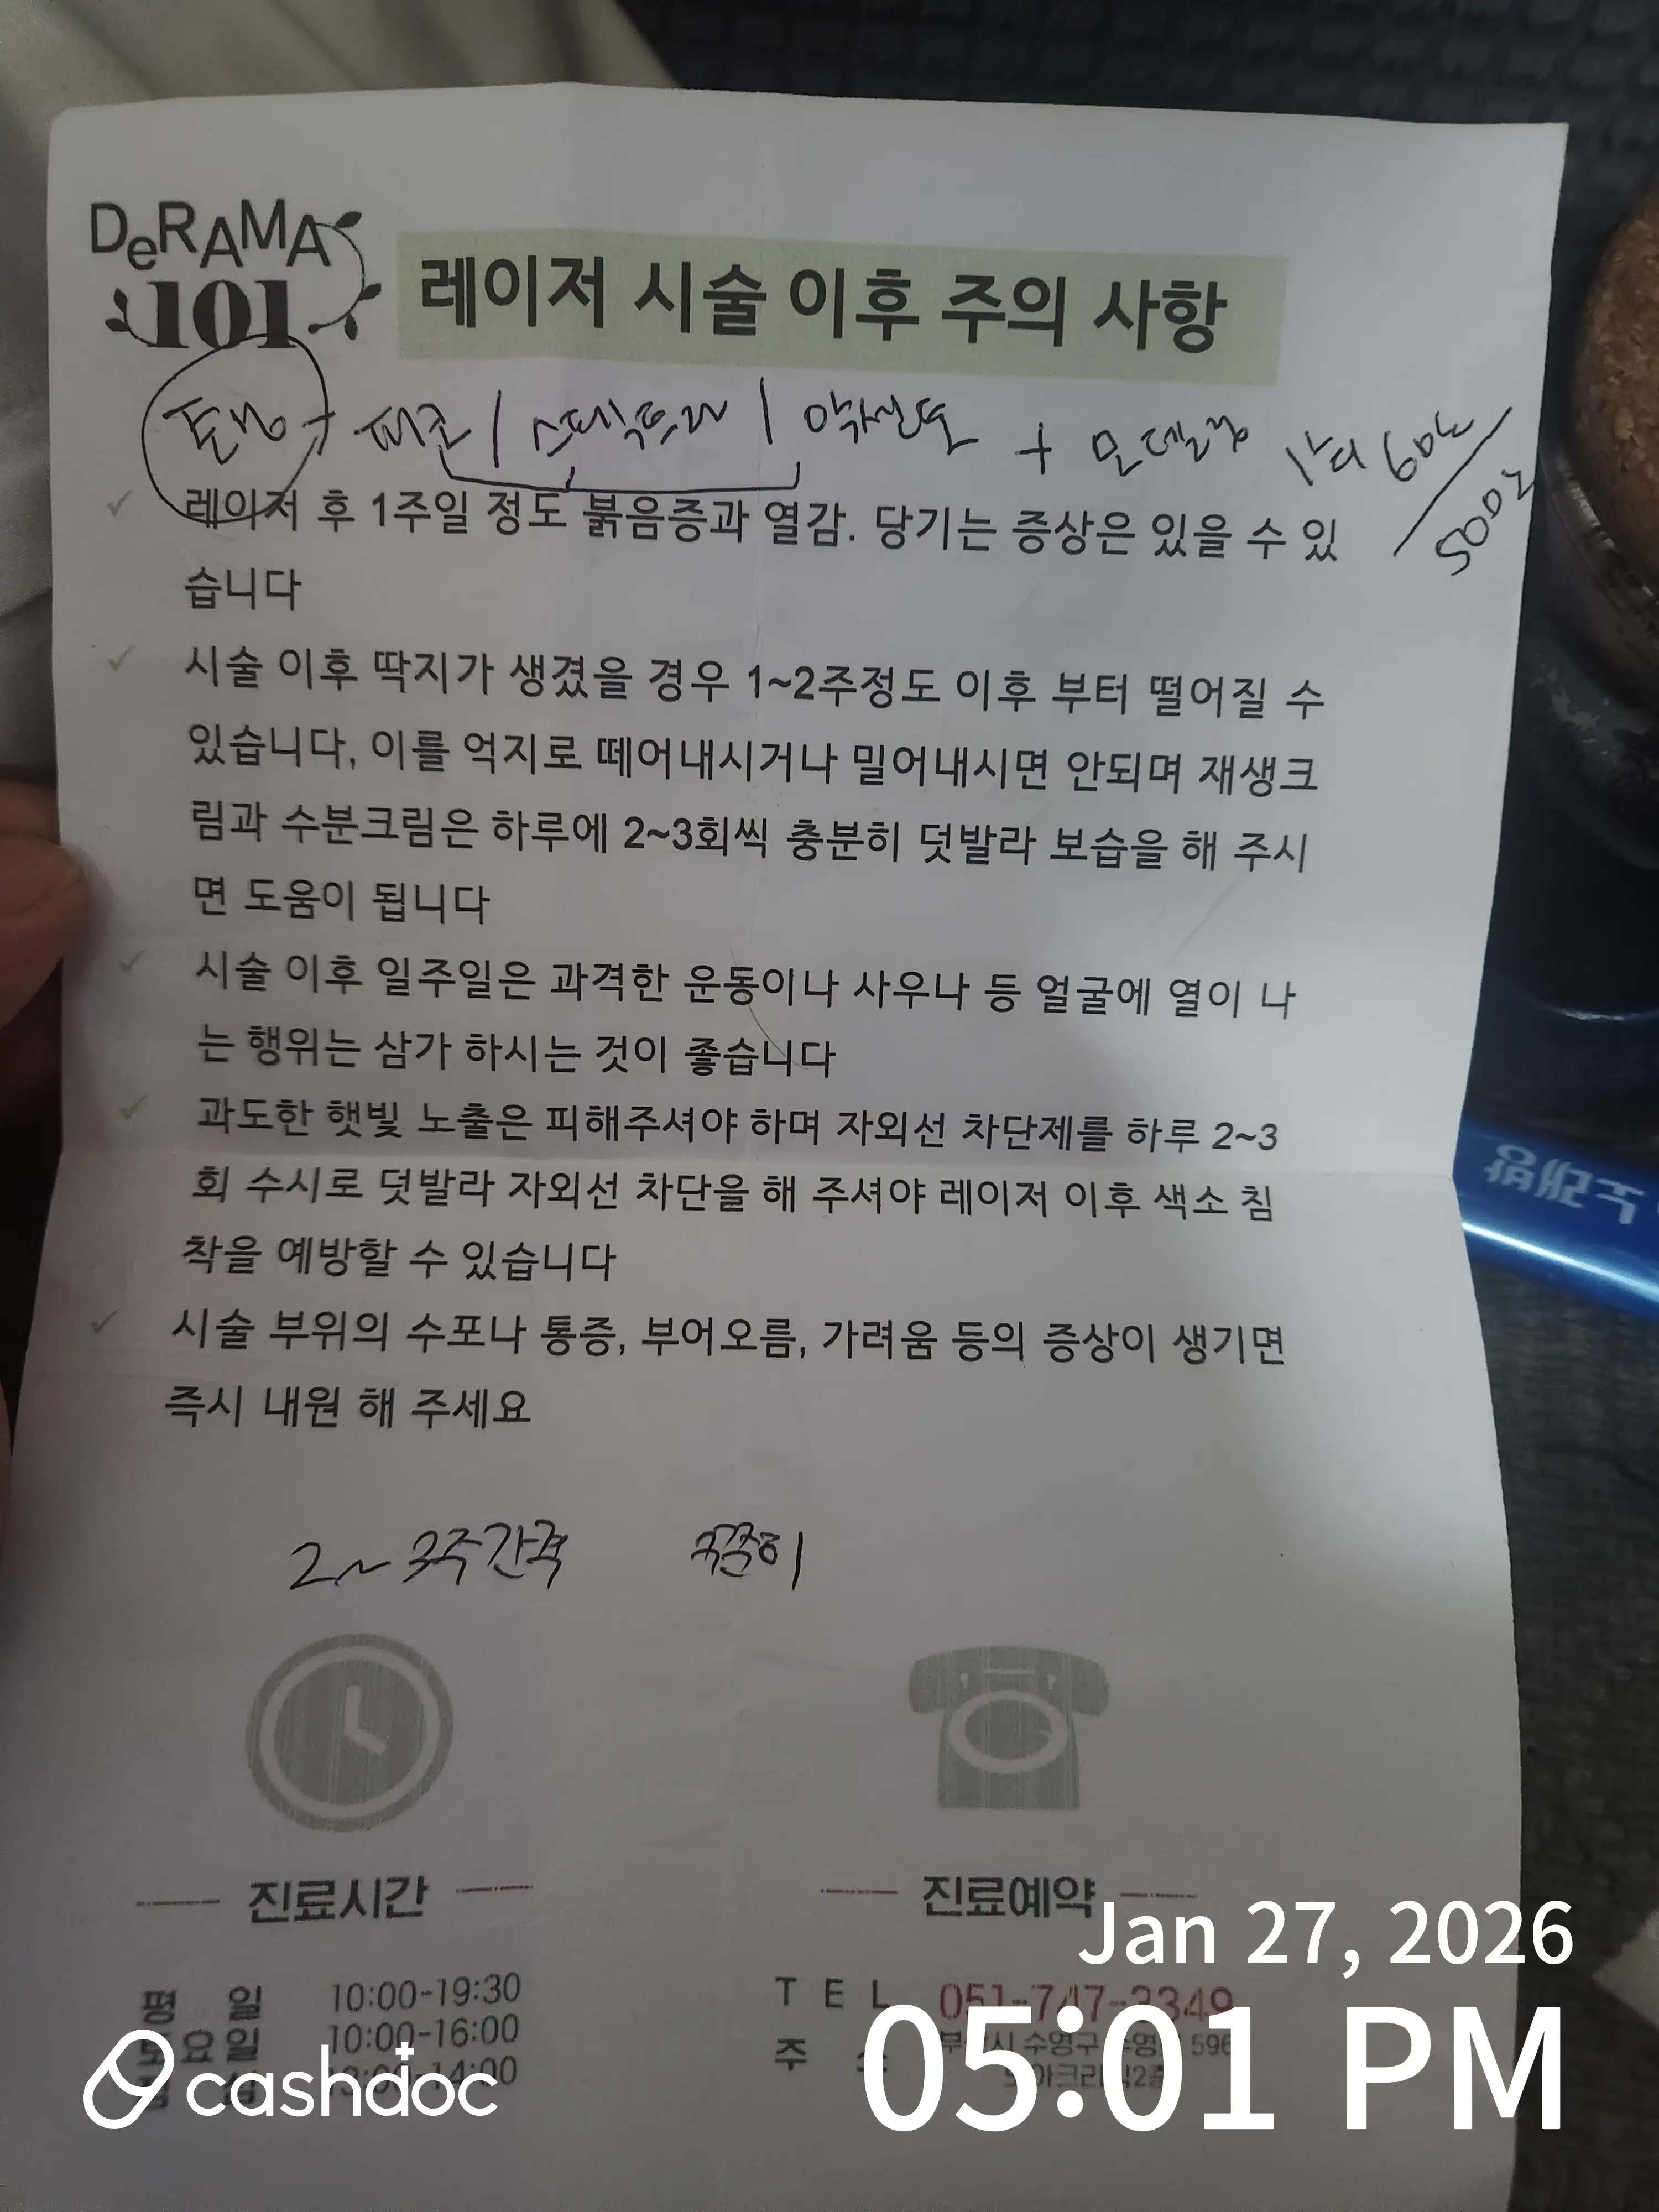 DeRAMA
101
레이저 시술 이후 주의 사항
토닝 + 피코 / 스페셜 / + 모델링 1회
레이저 후 1주일 정도 붉음증과 열감. 당기는 증상은 있을 수 있
습니다
시술 이후 딱지가 생겼을 경우 1~2주정도 이후 부터 떨어질 수
있습니다, 이를 억지로 떼어내시거나 밀어내시면 안되며 재생크
림과 수분크림은 하루에 2~3회씩 충분히 덧발라 보습을 해 주시
면 도움이 됩니다
시술 이후 일주일은 과격한 운동이나 사우나 등 얼굴에 열이 나
는 행위는 삼가 하시는 것이 좋습니다
과도한 햇빛 노출은 피해주셔야 하며 자외선 차단제를 하루 2~3
회 수시로 덧발라 자외선 차단을 해 주셔야 레이저 이후 색소 침
착을 예방할 수 있습니다
시술 부위의 수포나 통증, 부어오름, 가려움 등의 증상이 생기면
즉시 내원 해 주세요
2~3주간격 꾸준히
진료시간
평 일 10:00-19:30
토요일 10:00-16:00
13:00-14:00
진료예약
TEL 051-747-3349
주 수영구 596
2층
Jan 27, 2026
05:01 PM
cashdoc